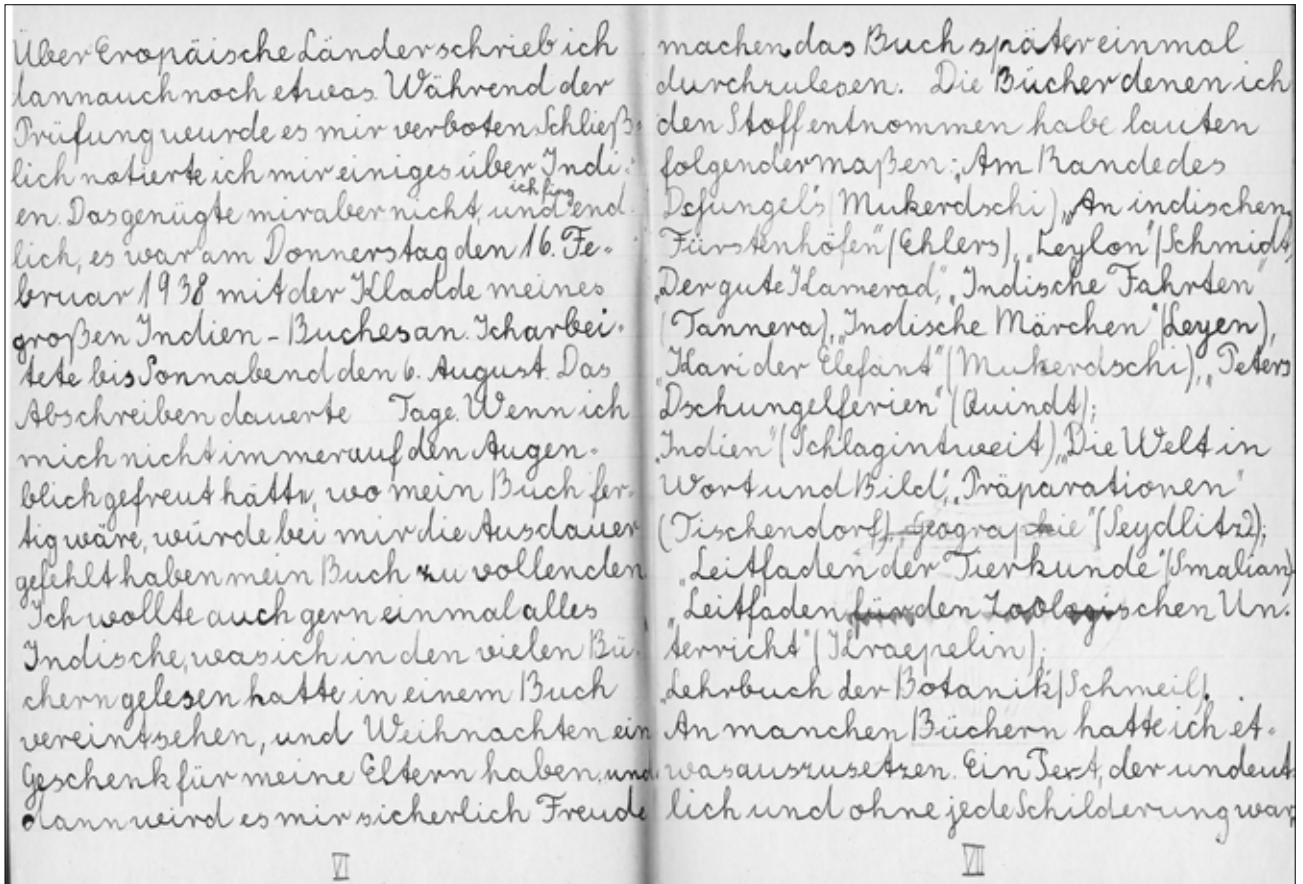 Über Eropäische Länder schrieb ich
dann auch noch etwas. Während der
Prüfung wurde es mir verboten. Schließ-
lich notierte ich mir einiges über Indi-
en. Das genügte mir aber nicht, und end-
ich fing
lich, es war am Donnerstag den 16. Fe-
bruar 1938 mit der Kladde meines
großen Indien - Buches an. Ich arbei-
tete bis Sonnabend den 6. August. Das
Abschreiben dauerte Tage. Wenn ich
mich nicht immer auf den Augen-
blick gefreut hätte, wo mein Buch fer-
tig wäre, würde bei mir die Ausdauer
gefehlt haben mein Buch zu vollenden.
Ich wollte auch gern einmal alles
Indische, was ich in den vielen Bü-
chern gelesen hatte in einem Buch
vereint sehen, und Weihnachten ein
Geschenk für meine Eltern haben, und
dann wird es mir sicherlich Freude
VI
machen das Buch später einmal
durchzulesen. Die Bücher denen ich
den Stoff entnommen habe lauten
folgendermaßen: „Am Rande des
Dsjungels" (Mukerdschi), „An indischen
Fürstenhöfen" (Ehlers), „Ceylon" (Schmidt),
„Der gute Kamerad", „Indische Fahrten"
(Tannera), „Indische Märchen" (Leyen),
„Kari der Elefant" (Mukerdschi), „Peters
Dschungelferien" (Quindt);
„Indien" (Schlagintweit), „Die Welt in
Wort und Bild", „Präparationen"
(Tischendorf), „Geographie" (Seydlitz 2);
„Leitfaden der Tierkunde" (Smalian)
„Leitfaden für den Zoologischen Un-
terricht" (Kraepelin);
„Lehrbuch der Botanik" (Schmeil).
An manchen Büchern hatte ich et-
was auszusetzen. Ein Text, der undeut-
lich und ohne jede Schilderung war,
VII